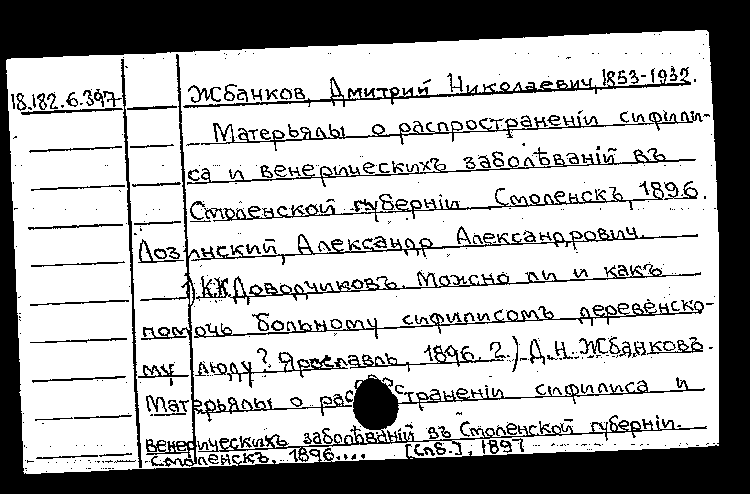 18.182.6.397 Жбанков, Дмитрий Николаевич, 1853-1932.
Матерьялы о распространенiи сифили-
са и венерическихъ заболѣванiй въ
Смоленской губернiи Смоленскъ, 1896.
Лозинский, Александр Александрович.
1) К.К. Доводчиковъ. Можно ли и какъ
помочь больному сифилисомъ деревенско-
му люду? Ярославль, 1896. 2.) Д.Н. Жбанковъ.
Матерьялы о распространенiи сифилиса и
венерическихъ заболѣванiй въ Смоленской губернiи.
Смоленскъ. 1896.... [Спб.], 1897